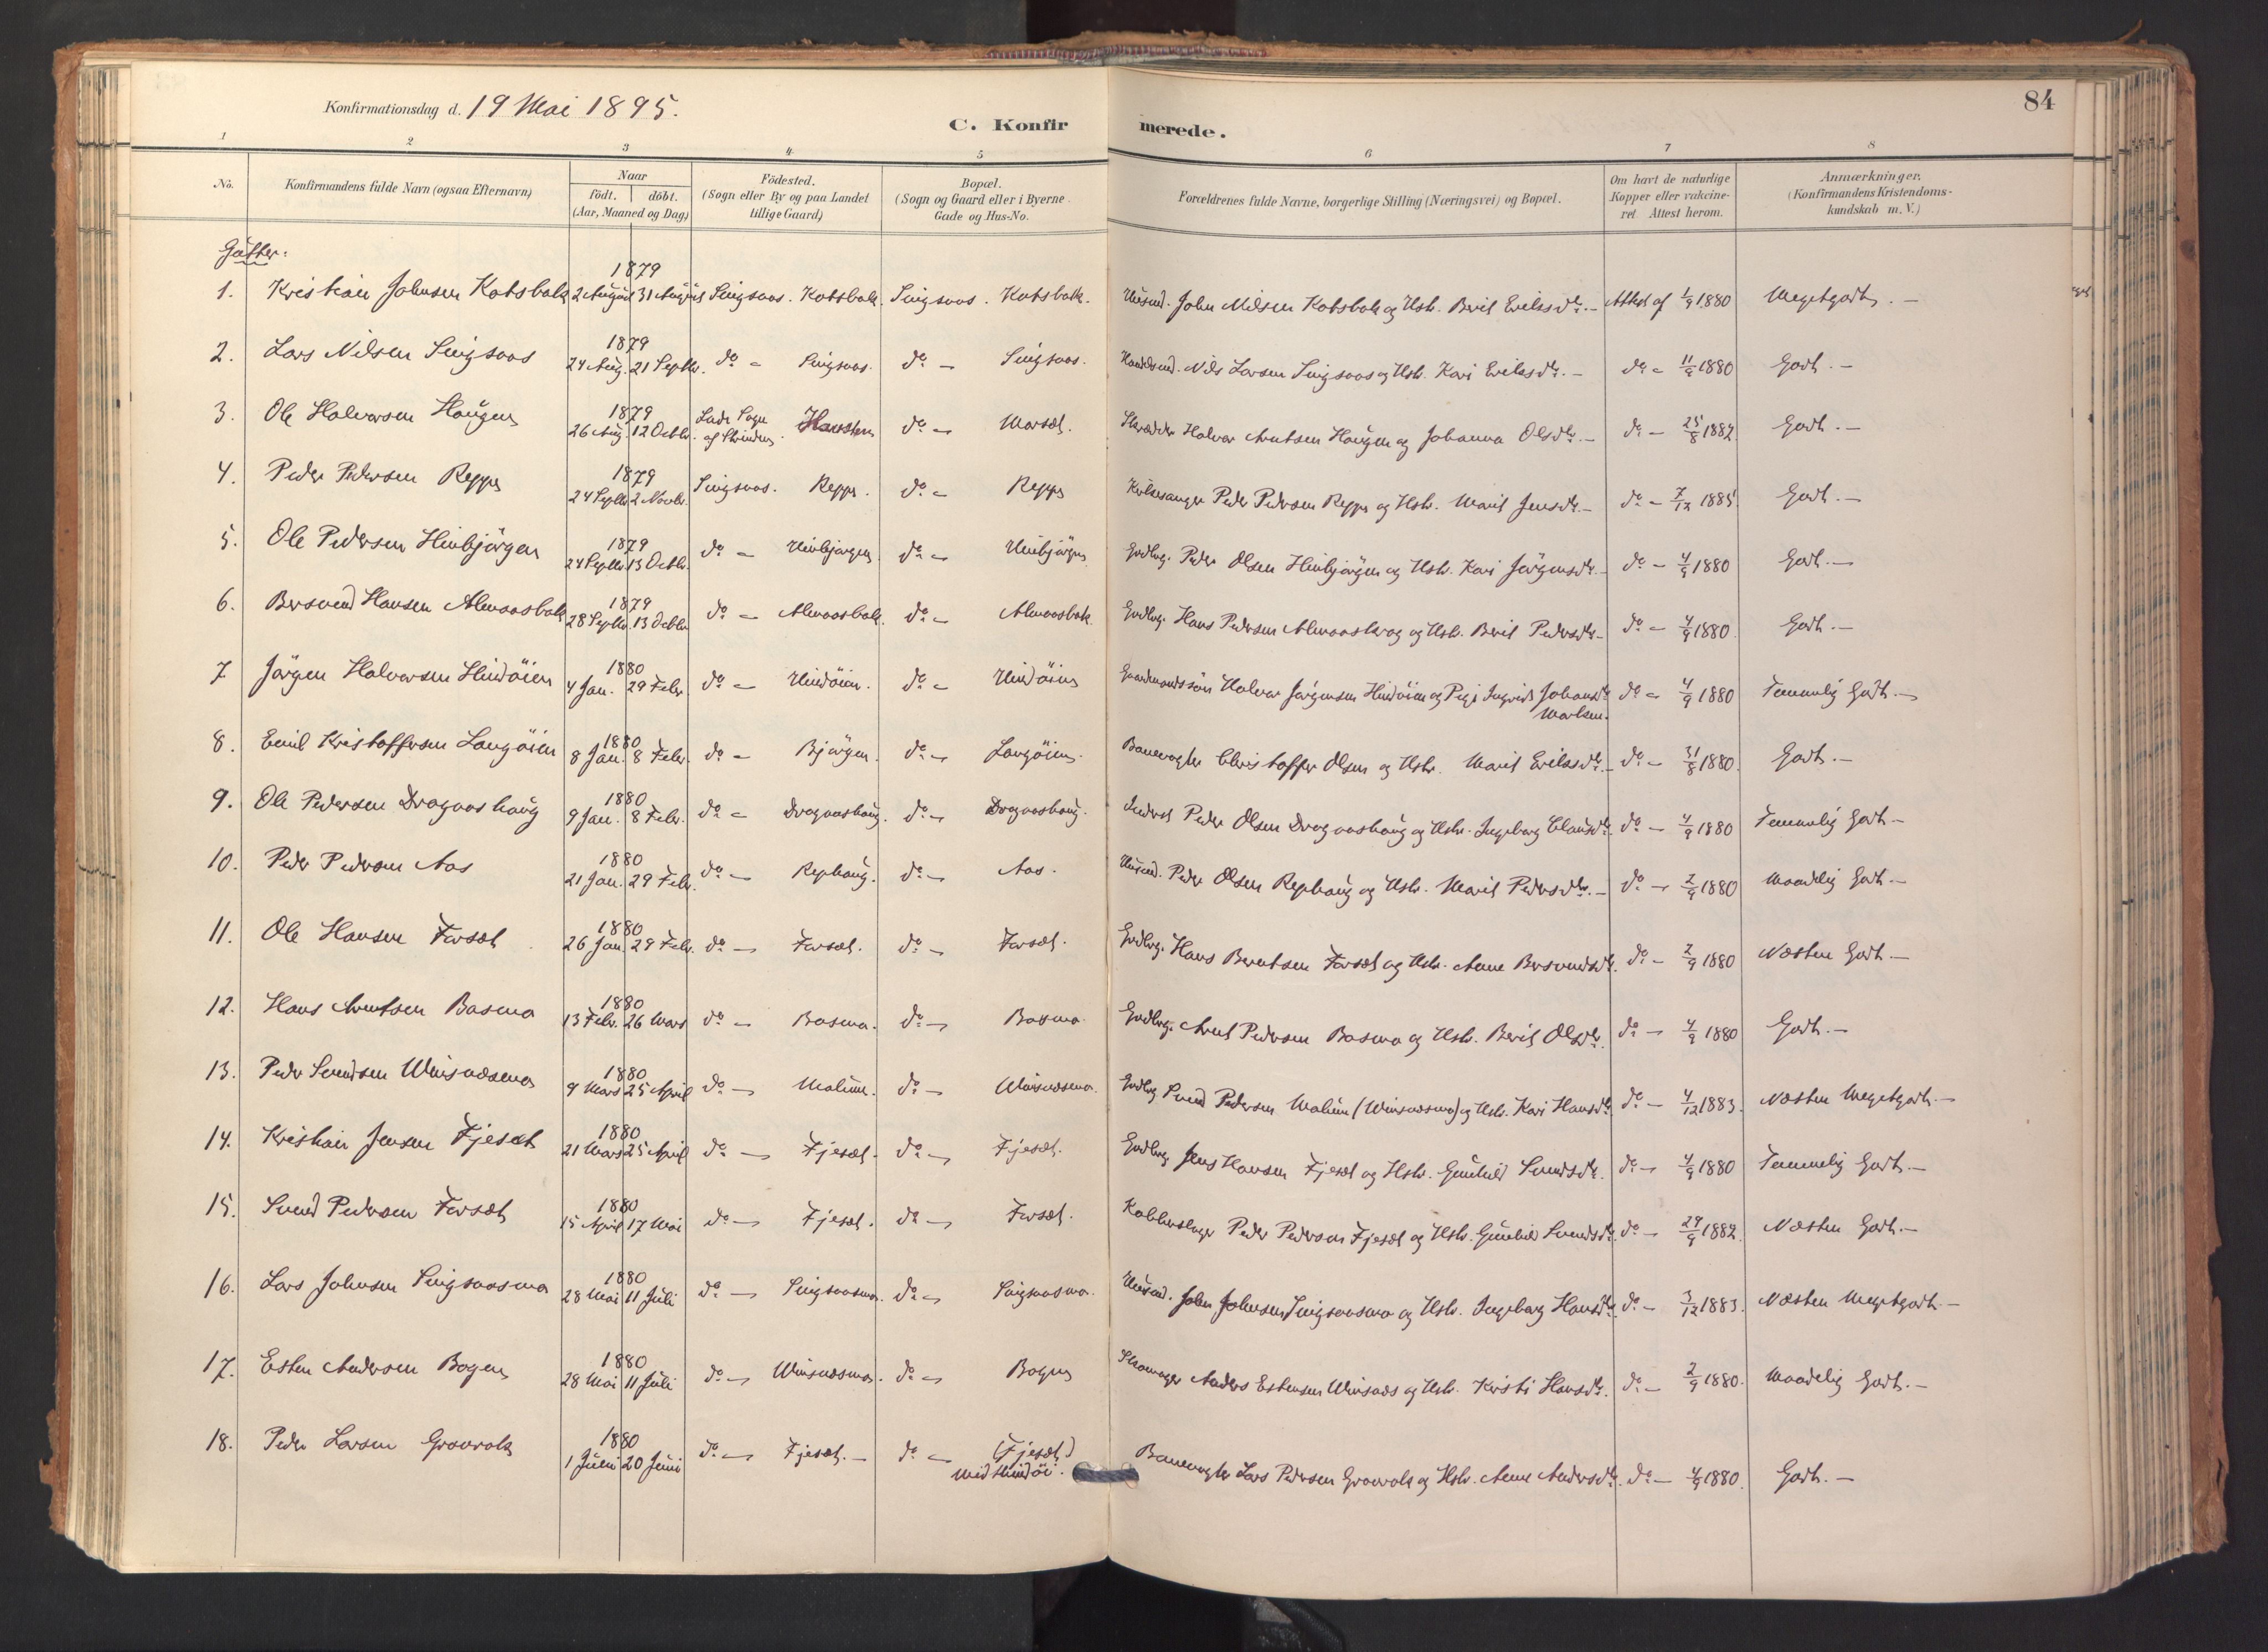 84
Konfirmationsdag d. 19 Mai 1895.
C. Konfirmerede.
1 2 3 4 5 6 7 8
No. Konfirmandens fulde Navn (ogsaa Efternavn) Naar födt. döbt. (Aar, Maaned og Dag) Födested. (Sogn eller By og paa Landet tillige Gaard) Bopæl. (Sogn og Gaard eller i Byerne Gade og Hus-No. Forældrenes fulde Navne, borgerlige Stilling (Næringsvei) og Bopæl. Om havt de naturlige Kopper eller vakcineret Attest herom. Anmærkninger. (Konfirmandens Kristendomskundskab m. V.)
Gutter:
1. Kristian Johnsen Kotsbak 1879 2 August 31 August Singsaas. Kotsbak. Singsaas. Kotsbak. Husmd. John Nilsen Kotsbak og Hstr. Berit Eriksdtr. — Attest af 1/9 1880 Megetgodt. —
2. Lars Nilsen Singsaas 1879 24 Aug. 21 Septbr. do — Singsaas. do — Singsaas. Handelsmd. Nils Larsen Singsaas og Hstr. Kari Eriksdtr. — do — 11/9 1880 Godt. —
3. Ole Halvorsen Haugen 1879 26 Aug. 12 Octbr. Lade Sogn af Strinden. do — Skrædder Halvor Arntsen Haugen og Johanna Olsdtr. — do — 25/8 1882 Godt. —
4. Peder Pedersen Reppe 1879 24 Septbr. 2 Novbr. Singsaas. Reppe. do — Reppe Kirkesanger Peder Pedersen Reppe og Hstr. Marit Jensdtr. — do — 7/12 1885 Godt. —
5. Ole Pedersen Hinbjörgen 1879 24 Septbr. 13 Octbr. do — Hinbjörgen do — Hinbjörgen Grdbrg. Peder Olsen Hinbjörgen og Hstr. Kari Jörgensdtr. — do — 4/9 1880 Godt. —
6. Bersvend Hansen Almaasbak 1879 28 Septbr. 13 Octbr. do — Almaasbak. do — Almaasbak. Grdbrg. Hans Pedersen og Hstr. Berit Pedersdtr. — do — 4/9 1880. Godt. —
7 Jörgen Halvorsen Hindöien 1880 4 Jan. 29 Febr. do — Hindöien. do — Hindöien Gaardmandssön Halvor Jörgensen Hindöien og Pige Ingrid Johansdtr. do — 4/9 1880 Temmelig Godt. —
8. Emil Kristoffersen Langöien 1880 8 Jan. 8 Febr. do — Bjørgen. do — Langöien. Banevogter Christoffer Olsen og Hstr. Marit Eriksdtr. — do — 31/8 1880. Godt. —
9. Ole Pedersen Dragaashaug 1880 9 Jan. 8 Febr. do — Dragaashaug. do — Dragaashaug. Inderst Peder Olsen Dragaashaug og Hstr. Ingeborg Clausdtr. do — 4/9 1880 Temmelig Godt —
10. Peder Pedersen Aas 1880 21 Jan. 29 Febr. do — Rephaug. do — Aas. Husmd. Peder Olsen Rephaug og Hstr. Marit Pedersdtr. — do — 2/9 1880 Maadelig Godt. —
11. Ole Hansen Forset 1880 26 Jan. 29 Febr. do — Forset. do — Forset. Grdbrg. Hans Berntsen Forset og Hstr. Anne Bersvendsdtr. do — 2/9 1880 Næsten Godt. —
12. Hans Arntsen Basmo 1880 13 Febr. 26 Mars do — Basmo. do — Basmo Grdbrg. Arnt Pedersen Basmo og Hstr. Berit Olsdtr. do — 4/9 1880 Godt. —
13. Peder Svendsen Winsnesmo 1880 9 Mars 25 April do — Malum. do — Winsnesmo. Grdbrg Svend Pedersen Malum (Winsnesmo) og Hstr. Kari Hansdtr. do — 4/12 1883. Næsten Megetgodt. —
14. Kristian Jensen Fjeset 1880 21 Mars 25 April do — Fjeset. do — Fjeset. Grdbrg. Jens Hansen Fjeset og Hstr. Gunhild Svendsdtr. do — 4/9 1880 Temmelig Godt. —
15. Svend Pedersen Forset 1880 15 April 17 Mai do — Fjeset. do — Forset. Kobberslager Peder Pedersen Fjeset og Hstr. Gunhild Svendsdtr. do — 29/9 1882. Næsten Godt. —
16. Lars Johnsen Singsaasmo 1880 28 Mai 11 Juli do — Singsaasmo. do — Singsaasmo. Husmd. John Johnsen Singsaasmo og Hstr. Ingeborg Hansdtr. do — 3/12 1883. Næsten Megetgodt. —
17. Esten Andersen Bogen 1880 28 Mai 11 Juli do — Winsnesmo. do — Bogen Skomager Anders Estensen Winsnes og Hstr. Kirsti Hansdtr. do — 2/9 1880. Maadelig Godt. —
18. Peder Larsen Graavold 1880 1 Juni 20 Juni do — Fjeset. — do — (Fjeset) Banevogter Lars Pedersen Graavold og Hstr. Anne Andersdtr. do — 4/9 1880. Godt. —